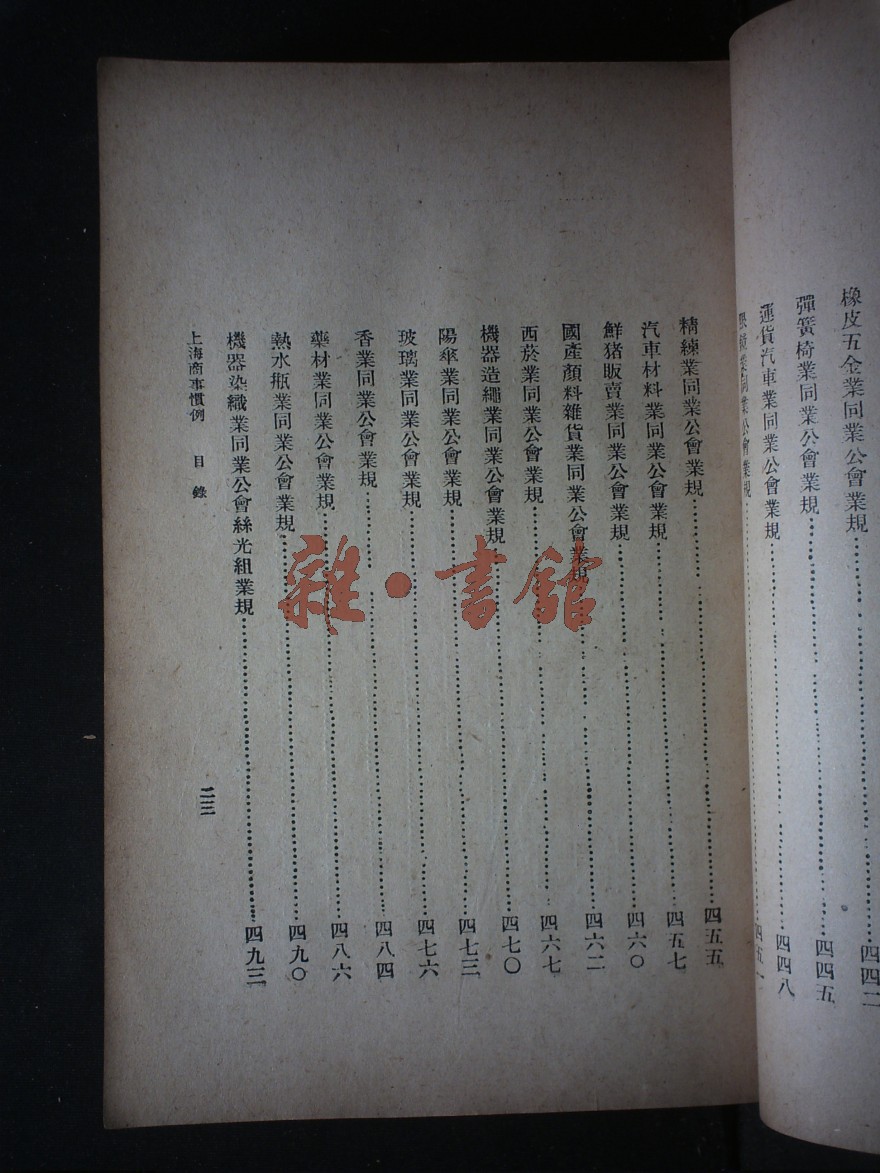 橡皮五金業同業公會業規 四四二
彈簧椅業同業公會業規 四四五
運貨汽車業同業公會業規 四四八
鏡業同業公會業規 四五一
精練業同業公會業規 四五五
汽車材料業同業公會業規 四五七
鮮猪販賣業同業公會業規 四六〇
國產顏料雜貨業同業公會業規 四六二
西菸業同業公會業規 四六七
機器造繩業同業公會業規 四七〇
陽傘業同業公會業規 四七三
玻璃業同業公會業規 四七六
香業同業公會業規 四八四
藥材業同業公會業規 四八六
熱水瓶業同業公會業規 四九〇
機器染織業同業公會絲光組業規 四九三
上海商事慣例 目錄 二三
雜·書館